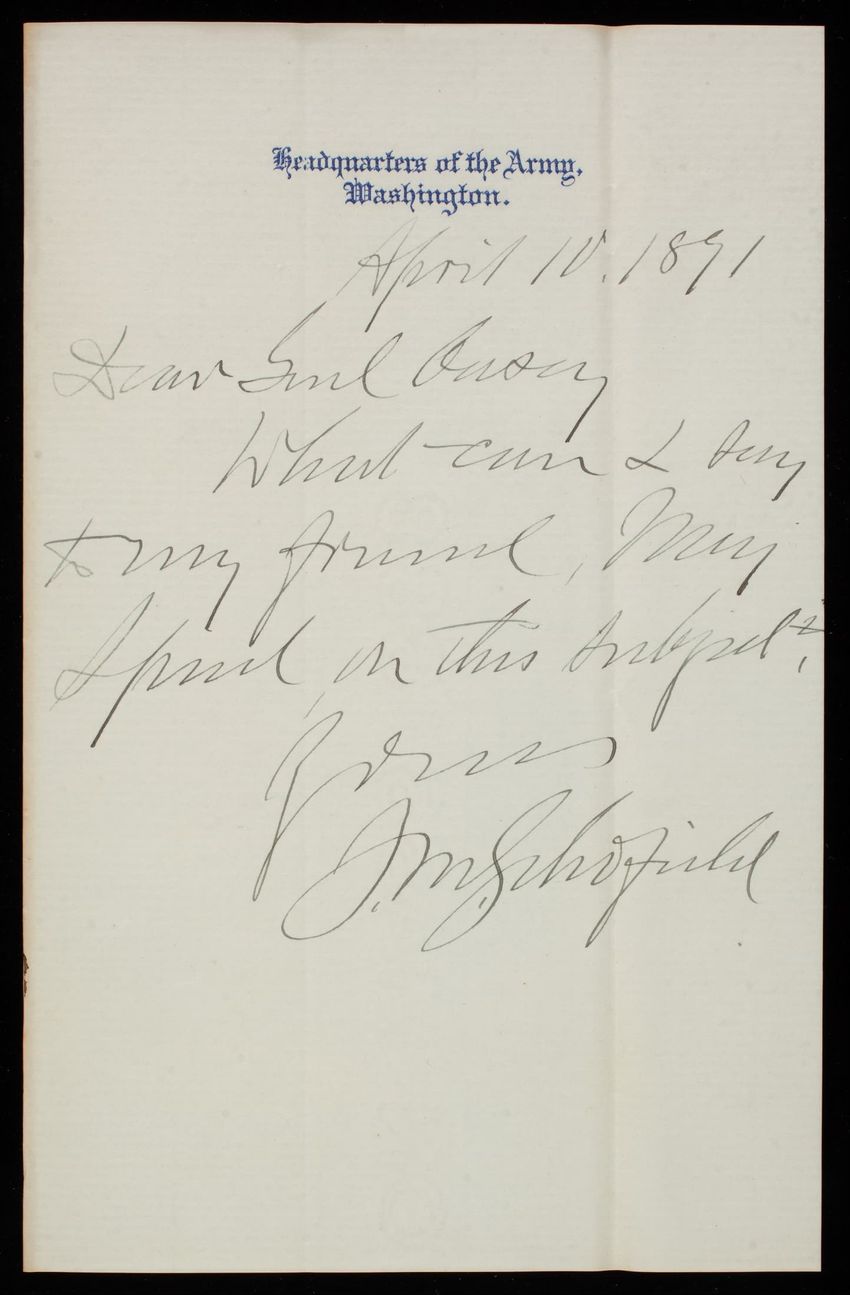 Headquarters of the Army,
Washington.
April 10. 1891
Dear Genl Casey
What can I say
to my friend, Maj
on this subject?
Yours
J. M. Schofield